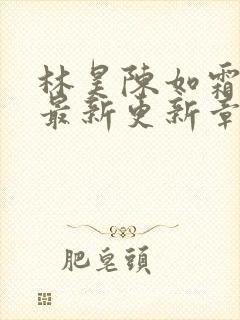 林昊陈如霜
最新更新章
肥皂頭